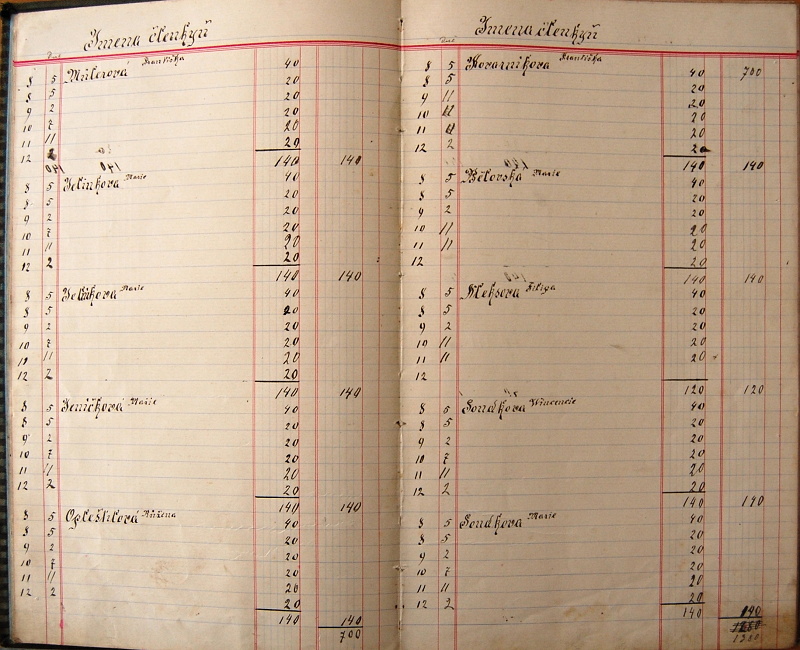 Jmena členkyň
Františka
8 5 Müllerová 40
8 5 20
9 2 20
10 7 20
11 11 20
12 20
140 140
8 5 Jelínkova Marie 40
8 5 20
9 2 20
10 7 20
11 11 20
12 2 20
140 140
8 5 Marie 40
8 5 20
9 2 20
10 7 20
11 11 20
12 2 20
140 140
8 5 Jeničková Marie 40
8 5 20
9 2 20
10 7 20
11 11 20
12 2 20
140 140
8 5 Opleštilová Růžena 40
8 5 20
9 2 20
10 7 20
11 11 20
12 2 20
140 140
700
Jmena členkyň
8 5 Kovarnikova Františka 40 700
8 5 20
9 11 20
10 11 20
11 11 20
12 2 20
140 140
8 5 Bělovska Marie 40
8 5 20
9 2 20
10 11 20
11 11 20
12 20
140 140
8 5 40
8 5 20
9 2 20
10 11 20
11 11 20
12
120 120
8 5 Soudkova Vincencie 40
8 5 20
9 2 20
10 7 20
11 11 20
12 2 20
140 140
8 5 Soudkova Marie 40
8 5 20
9 2 20
10 7 20
11 11 20
12 2 20
140 140
1380